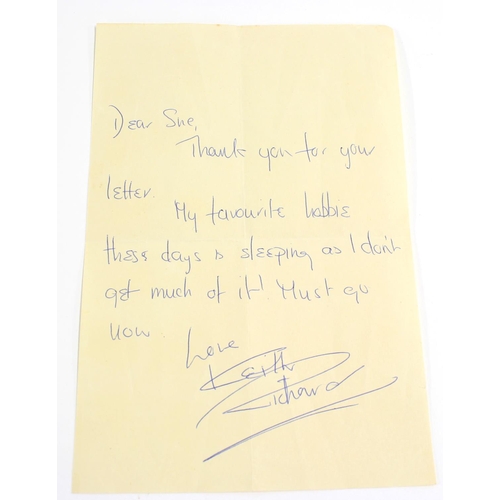 Dear Sue,
Thank you for your
letter.
My favourite hobbie
these days is sleeping as I don't
get much of it! Must go
now.
Love
Keith
Richard